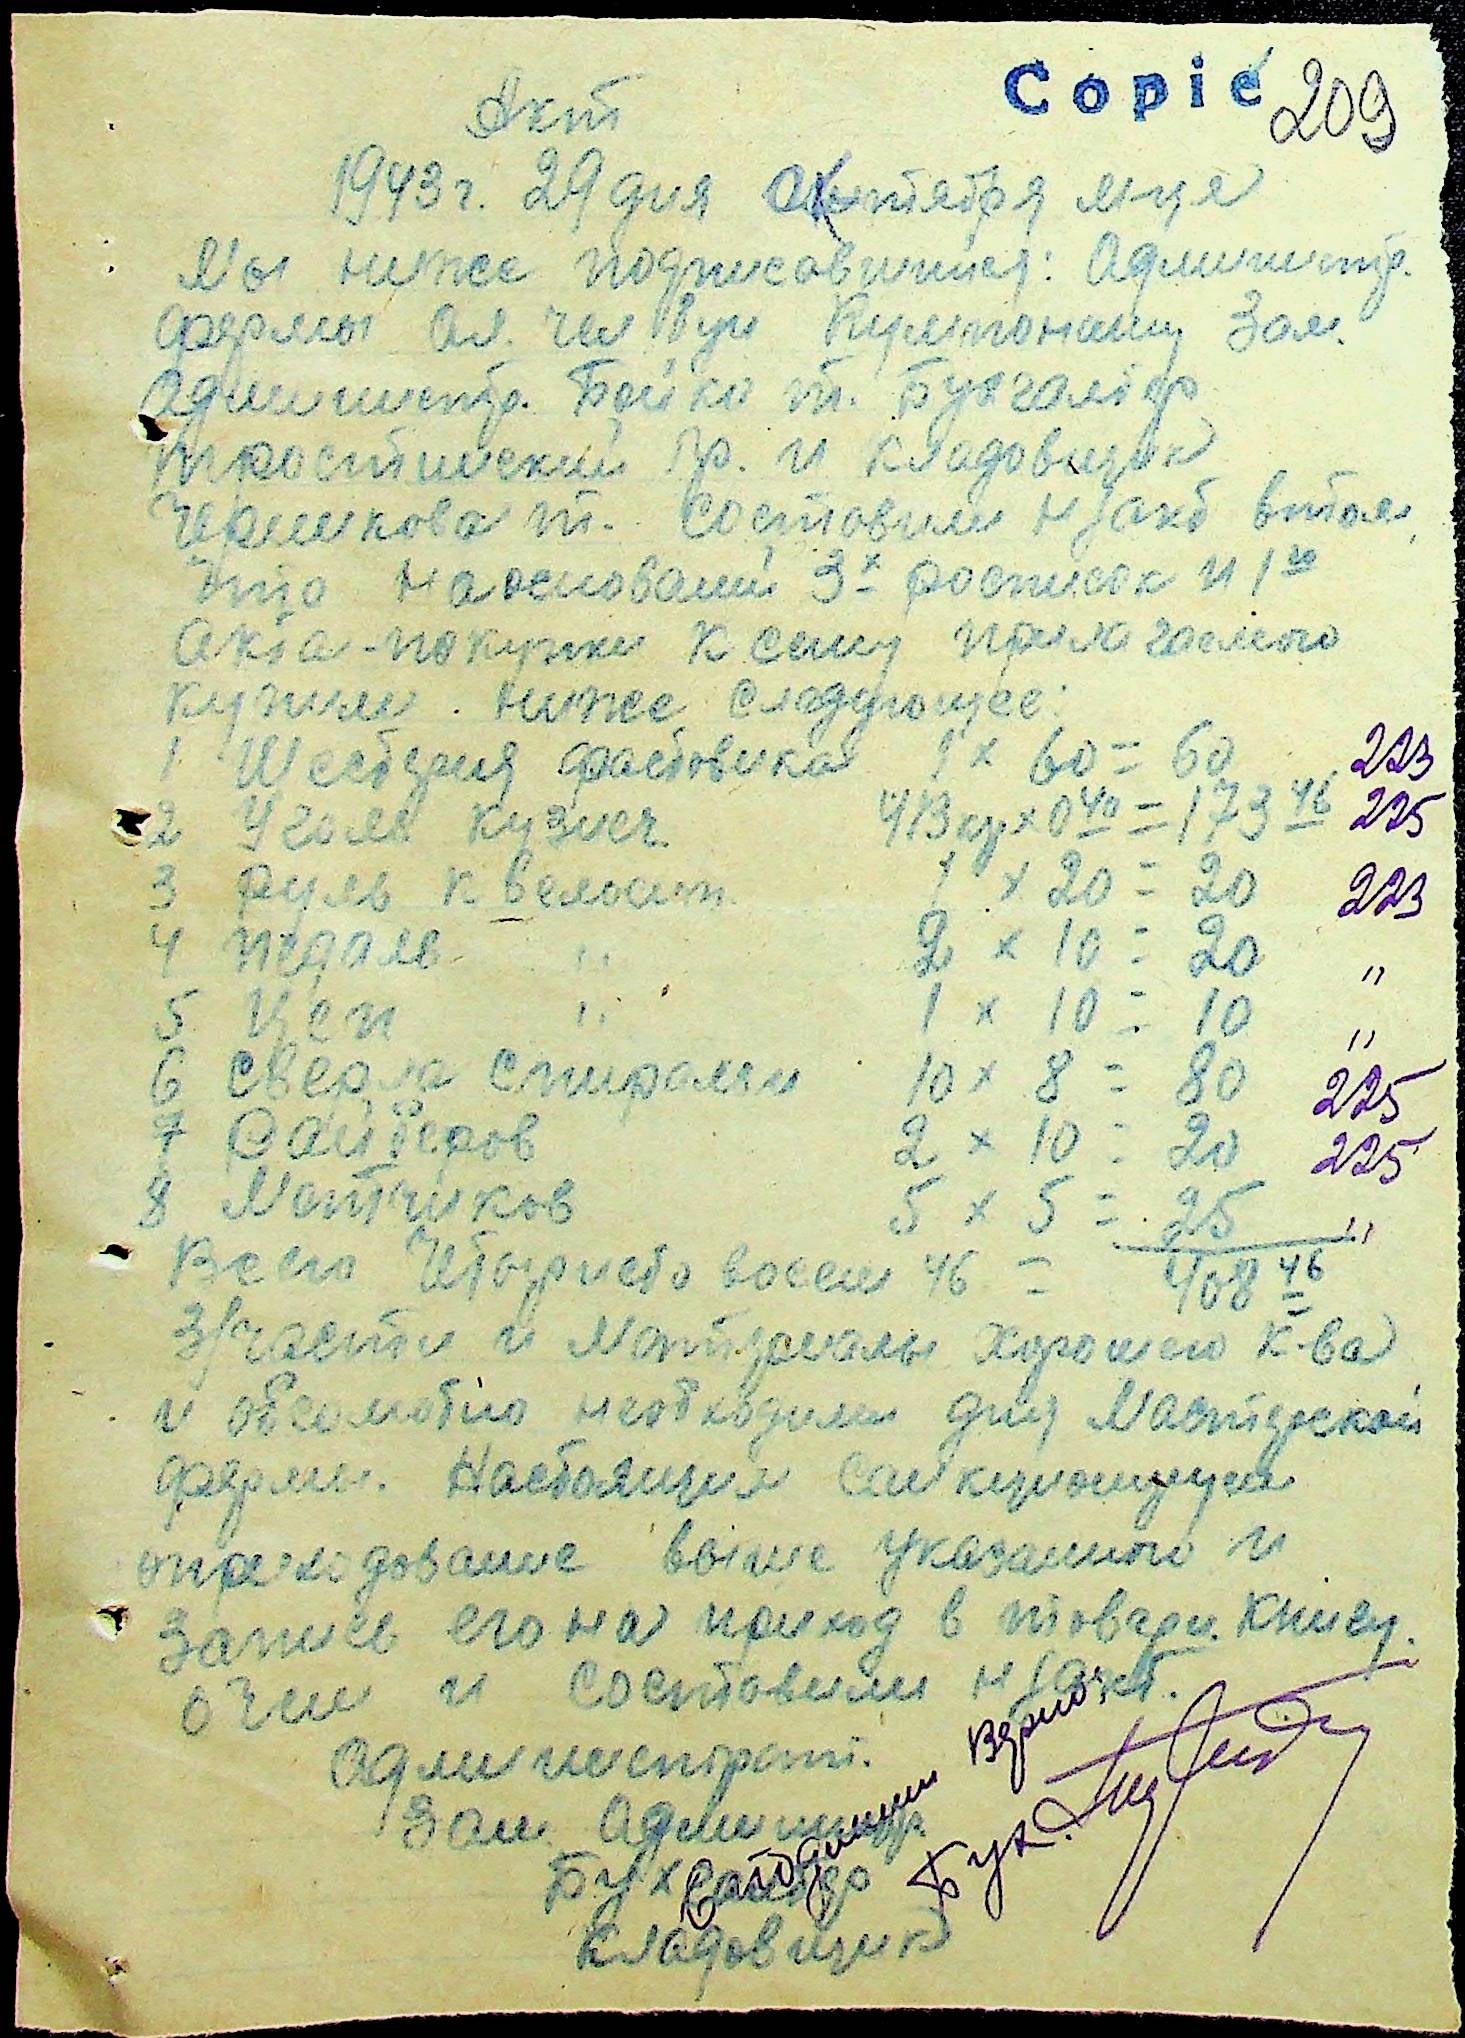 Copie 209
Акт
1943 г. 29 дня Октября м-ця
Мы ниже подписавшиеся: Администр.
фермы Ол. Зам.
Администр. Бойко т. Бухгалтер
Гр. и кладовщик
Черникова т. Составили н/акт втом,
что на основании 3х росписок и 1го
акта-покупки к сему прилагаемого
купили ниже следующее:
1 Шестерня 1 x 60 = 60 223
2 Уголь кузнеч. 413 кг x 0 40 = 173 46 225
3 руль к велосип. 1 x 20 = 20 223
4 педаль " 2 x 10 = 20 "
5 Цеп " 1 x 10 = 10 "
6 Сверла спиральн 10 x 8 = 80 225
7 2 x 10 = 20 225
8 Метчиков 5 x 5 = 25 "
Всего Четыриста восем 46 = 408 46
З/части и Материалы хорошего к-ва
и обсолютно необходимы для Мастерской
фермы. Настоящим санкционируем
оприходование выше указанного и
запись его на приход в товарн. книгу.
о чем и составили н/акт.
Администрат.
Зам. Администр.
Бухгалтер
Кладовщик
Верно:
Бух.